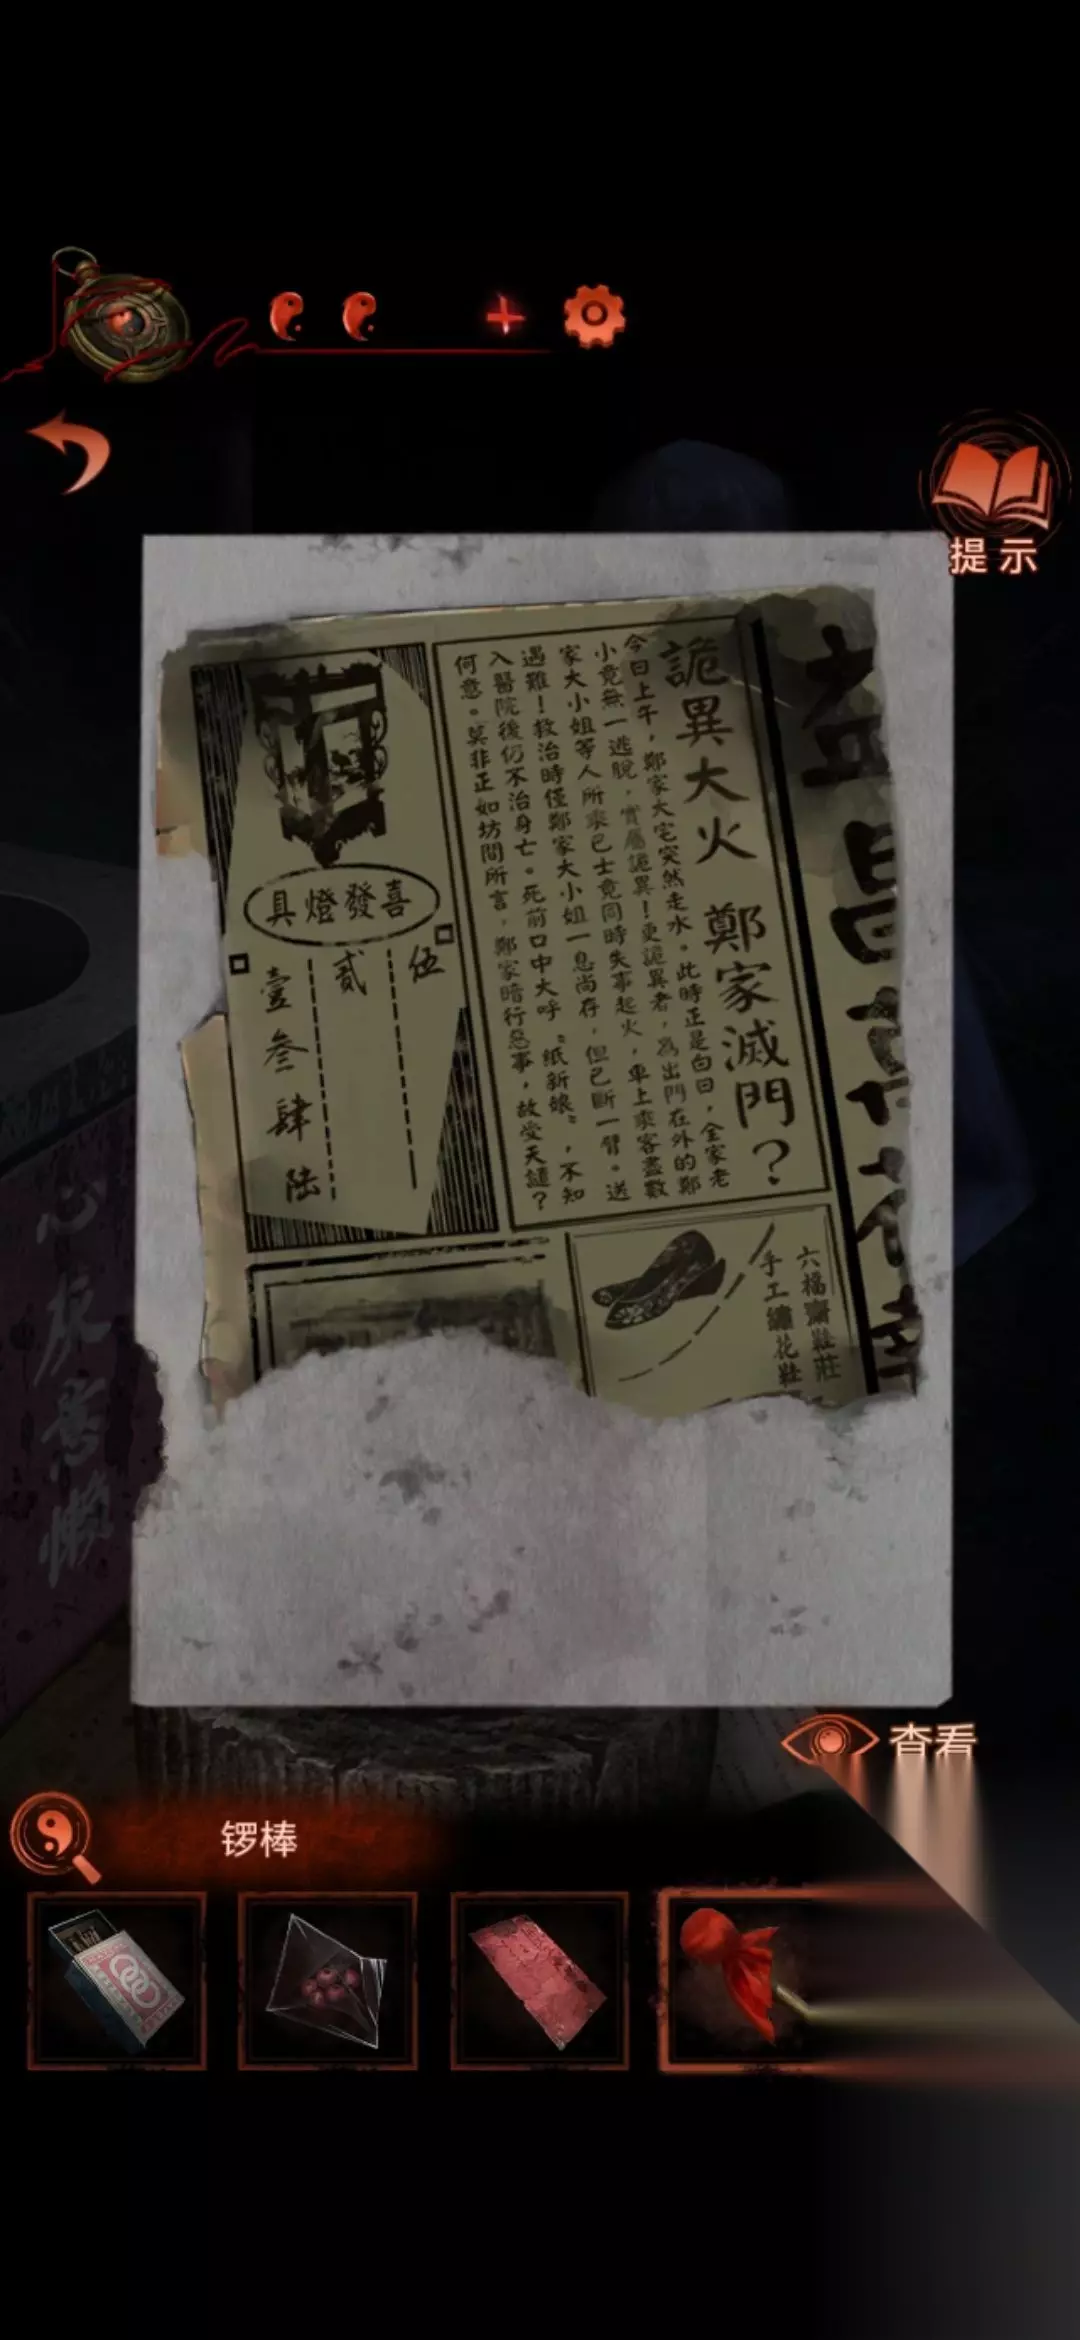 提示
益昌
詭異大火 鄭家滅門?
今日上午,鄭家大宅突然走水。此時正是白日,全家老
小竟無一逃脫,實屬詭異!更詭異者,為出門在外的鄭
家大小姐等人所乘巴士竟同時失事起火,車上乘客盡數
遇難!救治時僅鄭家大小姐一息尚存,但已斷一臂。送
入醫院後仍不治身亡。死前口中大呼“紙新娘”,不知
何意。莫非正如坊間所言,鄭家暗行惡事,故受天譴?
喜發燈具
伍
貳
壹叁肆陸
六福齋鞋莊
手工繡花鞋
心灰意懶
查看
锣棒